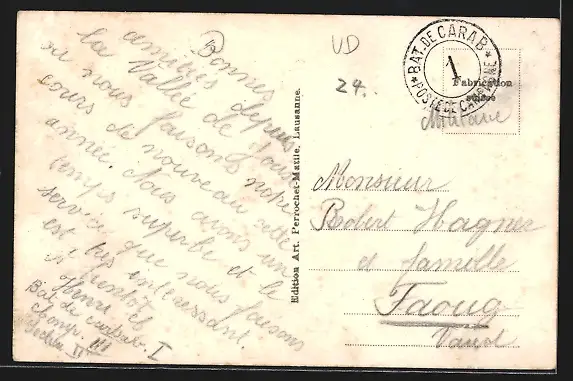 Bonnes
amitiés depuis
la Vallée de Joux
où nous faisons notre
cours de nouveau cette
année. Nous avons un
temps superbe et le
service que nous faisons
est très intéressant.
A bientôt
Henri
Bat de carab. I
Comp. III
Section II
Edition Art. Perrochet-Matile, Lausanne.
VD
24.
* BAT. DE CARAB *
1
POSTE DE CAMPAGNE
Fabrication
suisse
Militaire
Monsieur
Robert Hagner
et famille
Faoug
Vaud